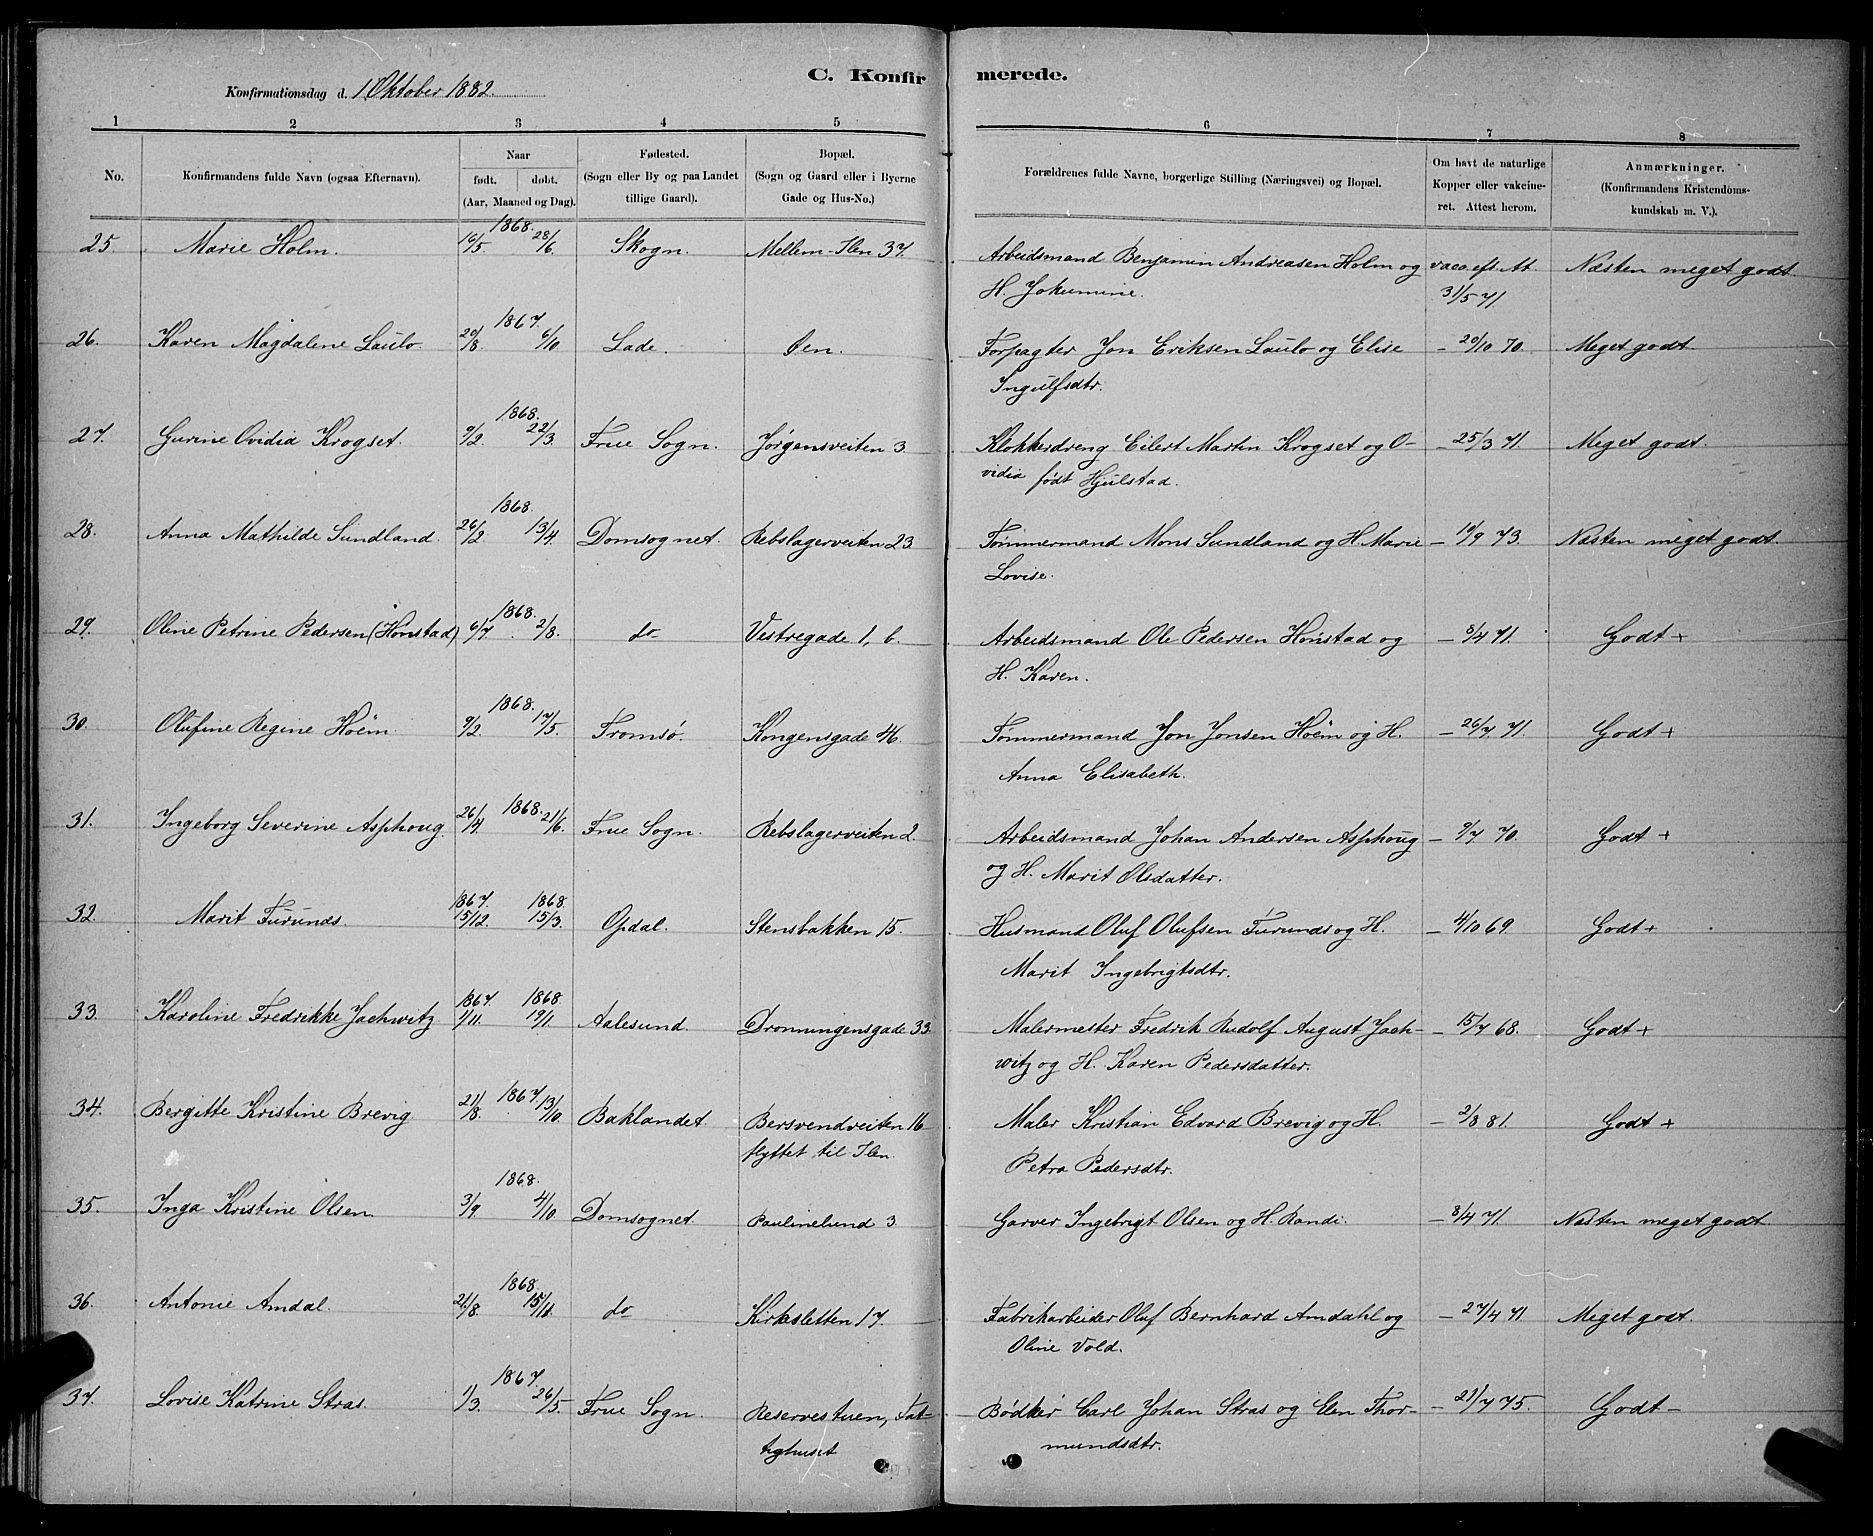 C. Konfirmerede.
Konfirmationsdag d. 1 Oktober 1882.
1 2 3 4 5 6 7 8
No.
Konfirmandens fulde Navn (ogsaa Efternavn).
Naar
født. døbt.
(Aar, Maaned og Dag).
Fødested.
(Sogn eller By og paa Landet
tillige Gaard).
Bopæl.
(Sogn og Gaard eller i Byerne
Gade og Hus-No.)
Forældrenes fulde Navne, borgerlige Stilling (Næringsvei) og Bopæl.
Om havt de naturlige
Kopper eller vakcine-
ret. Attest herom.
Anmærkninger.
(Konfirmandens Kristendoms-
kundskab m. V.).
1868.
25. Marie Holm. 16/5 28/6 Skogn. Mellem-Ilen 37. Arbeidsmand Benjamin Andreasen Holm og vacc. eft. At. Næsten meget godt.
H. Jokumine. 31/5 71
1867.
26. Karen Magdalene Laulo 20/8. 6/10 Lade. Øen. Forpagter Jon Eriksen Laulo og Elise — 20/10 70. Meget godt.
Ingulfsdtr.
1868.
27. Gurine Ovidia Krogset. 9/2. 22/3. Frue Sogn. Jørgensveiten 3 Klokkerdreng Eilert Marten Krogset og O- — 25/3 71. Meget godt.
vidia født Hjulstad.
1868.
28. Anna Mathilde Sundland. 26/2 13/4. Domsognet. Rebslagerveiten 23 Tømmermand Mons Sundland og H. Marie — 10/9 73. Næsten meget godt.
Lovise.
1868.
29. Oline Petrine Pedersen (Honstad) 6/7 2/8. do Vestregade 1, b. Arbeidsmand Ole Pedersen Honstad og — 3/4 71. Godt +
H. Karen.
1868.
30. Olufine Regine Hoëm. 9/2 17/5. Tromsø. Kongensgade 46. Tømmermand Jon Jonsen Hoëm og H. — 26/7 71. Godt +
Anna Elisabeth.
1868.
31. Ingeborg Severine Asphoug 26/4. 21/6. Frue Sogn. Rebslagerveiten 2. Arbeidsmand Johan Andersen Asphoug — 9/7 70. Godt +
og H. Marit Olsdatter.
1867. 1868.
32. Marit Furunds. 15/12. 15/3. Opdal. Stensbakken 15. Husmand Oluf Olufsen Furunds og H. — 4/10 69 Godt +
Marit Ingebrigtsdtr.
1867. 1868.
33. Karoline Fredrikke Jachwitz 1/11. 19/1. Aalesund. Dronningensgade 33 Malermester Fredrik Rudolf August Jach- — 15/7 68. Godt +
witz og H. Karen Pedersdatter.
1867.
34. Bergitte Kristine Brevig 21/8. 13/10. Baklandet. Bersvendveiten 16 Maler Kristian Edvard Brevig og H. — 2/8 81. Godt +
flyttet til Ilen. Petra Pedersdtr.
1868.
35. Inga Kristine Olsen 3/9 4/10 Domsognet Paulinelund 3 Garver Ingebrigt Olsen og H. Randi. — 3/4 71. Næsten meget godt
1868.
36. Antonie Amdal. 21/8. 15/11. do Kirkesletten 17. Fabrikarbeider Oluf Bernhard Amdahl og — 27/4 71 Meget godt.
Oline Vold.
1867.
37. Lovise Katrine Stras. 1/3. 26/5. Frue Sogn. Reservestuen, Fat- Bødker Carl Johan Stras og Elen Thor- — 21/7 75. Godt —
tighuset mundsdtr.